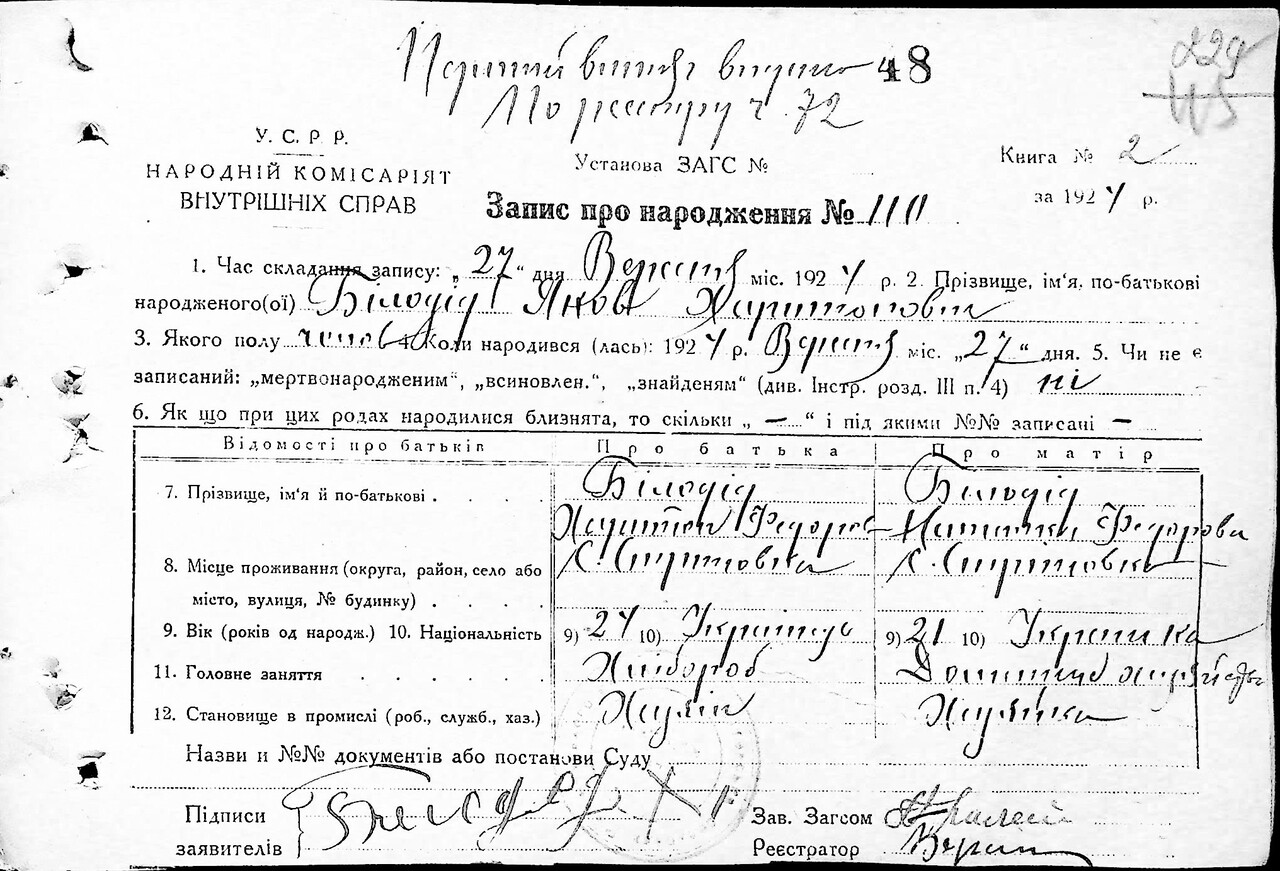 Перший витяг видано 48
По реєстру ч. 72
229
У. С. Р. Р.
НАРОДНІЙ КОМІСАРІЯТ
ВНУТРІШНІХ СПРАВ
Установа ЗАГС №
Книга № 2
за 1924 р.
Запис про народження № 110
1. Час складання запису: „27“ дня Вересня міс. 1924 р. 2. Прізвище, ім‘я, по-батькові
народженого(ої) Білодід Яков Харитонович
3. Якого полу чолов 4. Коли народився (лась): 1924 р. Вересня міс. „27“ дня. 5. Чи не є
записаний: „мертвонародженим“, „всиновлен.“, „знайденям“ (див. Інстр. розд. III п. 4) ні
6. Як що при цих родах народилися близнята, то скільки „ — “ і під якими №№ записані —
Відомості про батьків Про батька Про матір
7. Прізвище, ім‘я й по-батькові . . . . Білодід Білодід
Харитон Федоров Федорова
8. Місце проживання (округа, район, село або
місто, вулиця, № будинку) . . . .
9. Вік (років од народж.) 10. Національність 9) 24 10) Українець 9) 21 10) Українка
11. Головне заняття . . . . . Хлібороб
12. Становище в промислі (роб., служб., хаз.) Хазяїн Хазяйка
Назви и №№ документів або постанови Суду
Підписи
заявителів
Зав. Загсом
Реєстратор